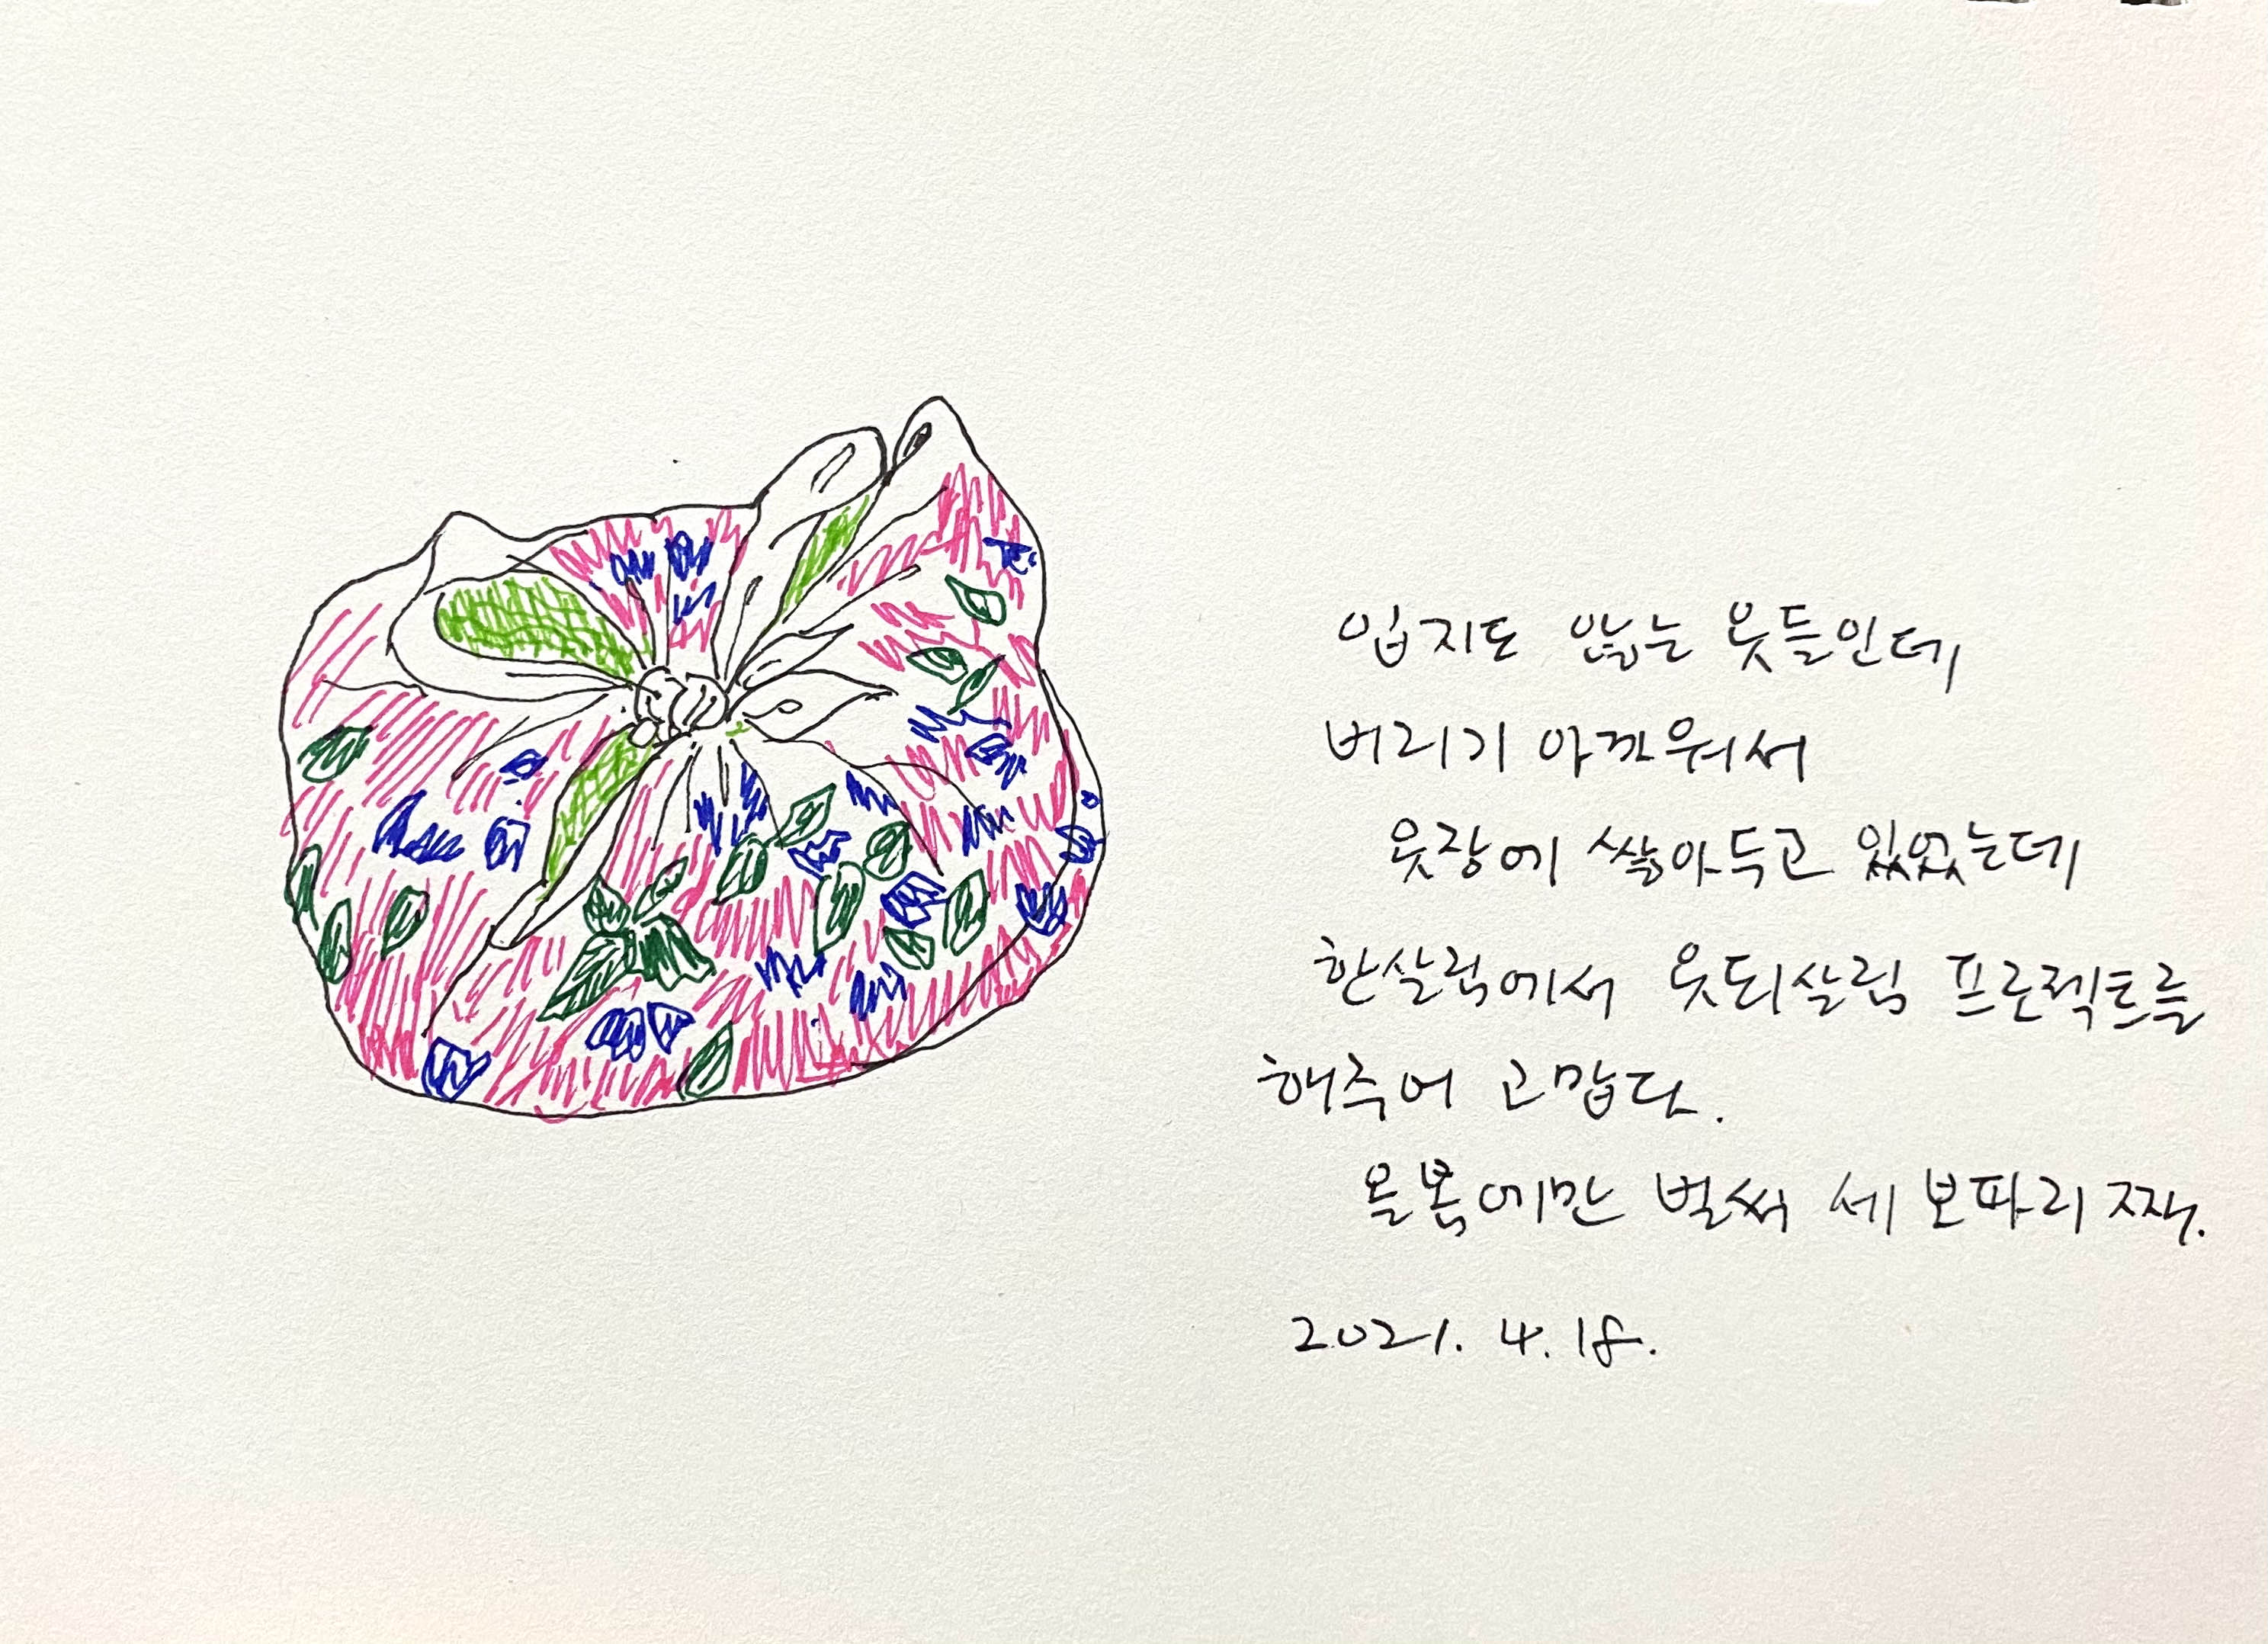 입지도 않는 옷들인데
버리기 아까워서
옷장에 쌓아두고 있었는데
한살림에서 옷되살림 프로젝트를
해주어 고맙다.
올봄에만 벌써 세 보따리 째.
2021. 4. 18.